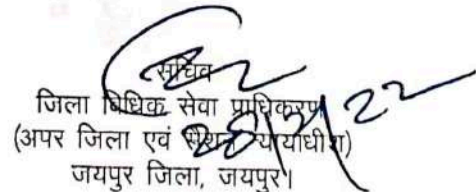 सचिव
जिला विधिक सेवा प्राधिकरण
(अपर जिला एवं सेशन न्यायाधीश)
जयपुर जिला, जयपुर।